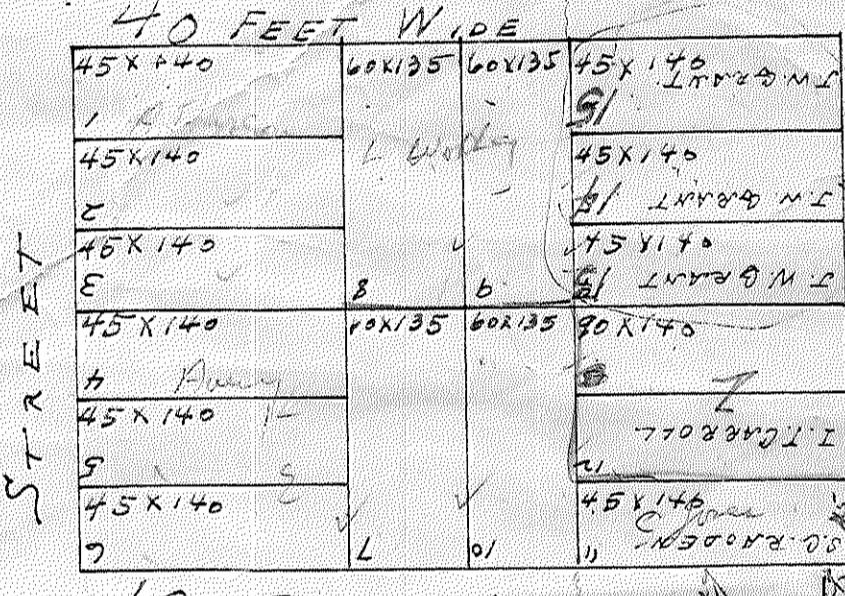 40 FEET WIDE
STREET
45 X 140
1
45 X 140
2
45 X 140
3
45 X 140
4
45 X 140
5
45 X 140
6
60X135
8
60X135
9
60X135
7
60X135
10
45 X 140
J.W. GRANT
15
45 X 140
J.W. GRANT
14
45 X 140
J.W. GRANT
13
90 X 140
I.T. CARROLL
12
45 X 140
S.C. RHODEN
11